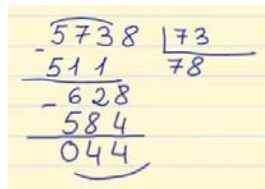 5738 |73
- 511 78
- 628
584
044